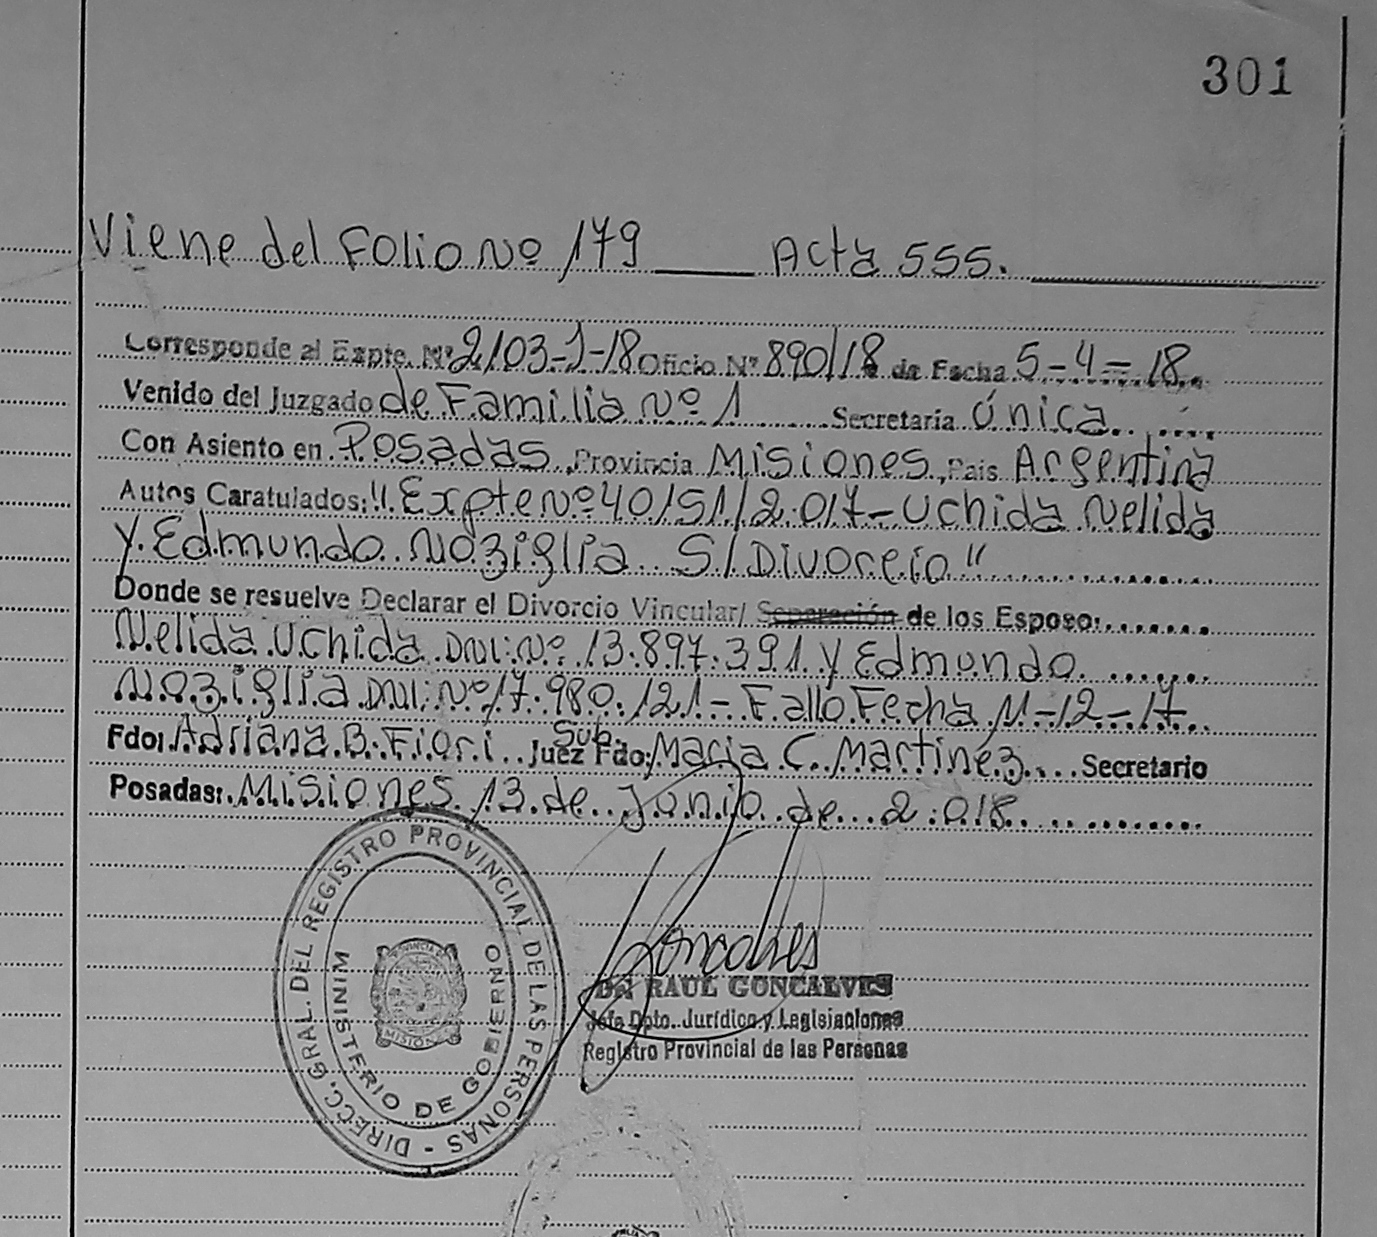 301
Viene del Folio Nº 179 ____ Acta 555.
Corresponde al Expte. Nº 2103-J-18 Oficio Nº 890/18 de Fecha 5-4-18.
Venido del Juzgado de Familia Nº 1 Secretaría Única.
Con Asiento en Posadas, Provincia Misiones, Pais Argentina
Autos Caratulados: "Expte Nº 40151/2.017-Uchida Nelida
y Edmundo Noziglia S/Divorcio"
Donde se resuelve Declarar el Divorcio Vincular/ Separación de los Esposo:
Nelida Uchida DNI: Nº 13.897.391 y Edmundo
Noziglia DNI: Nº 17.980.121- Fallo Fecha 11-12-17.
Sub.
Fdo: Adriana B. Fiori Juez Fdo: Maria C. Martinez Secretario
Posadas: Misiones 13 de Junio de 2.018
DIRECC. GRAL. DEL REGISTRO PROVINCIAL DE LAS PERSONAS -
MINISTERIO DE GOBIERNO
PROVINCIA
MISIONES
Goncalves
Dr. RAUL GONCALVES
Jefe Dpto. Jurídico y Legislaciones
Registro Provincial de las Personas